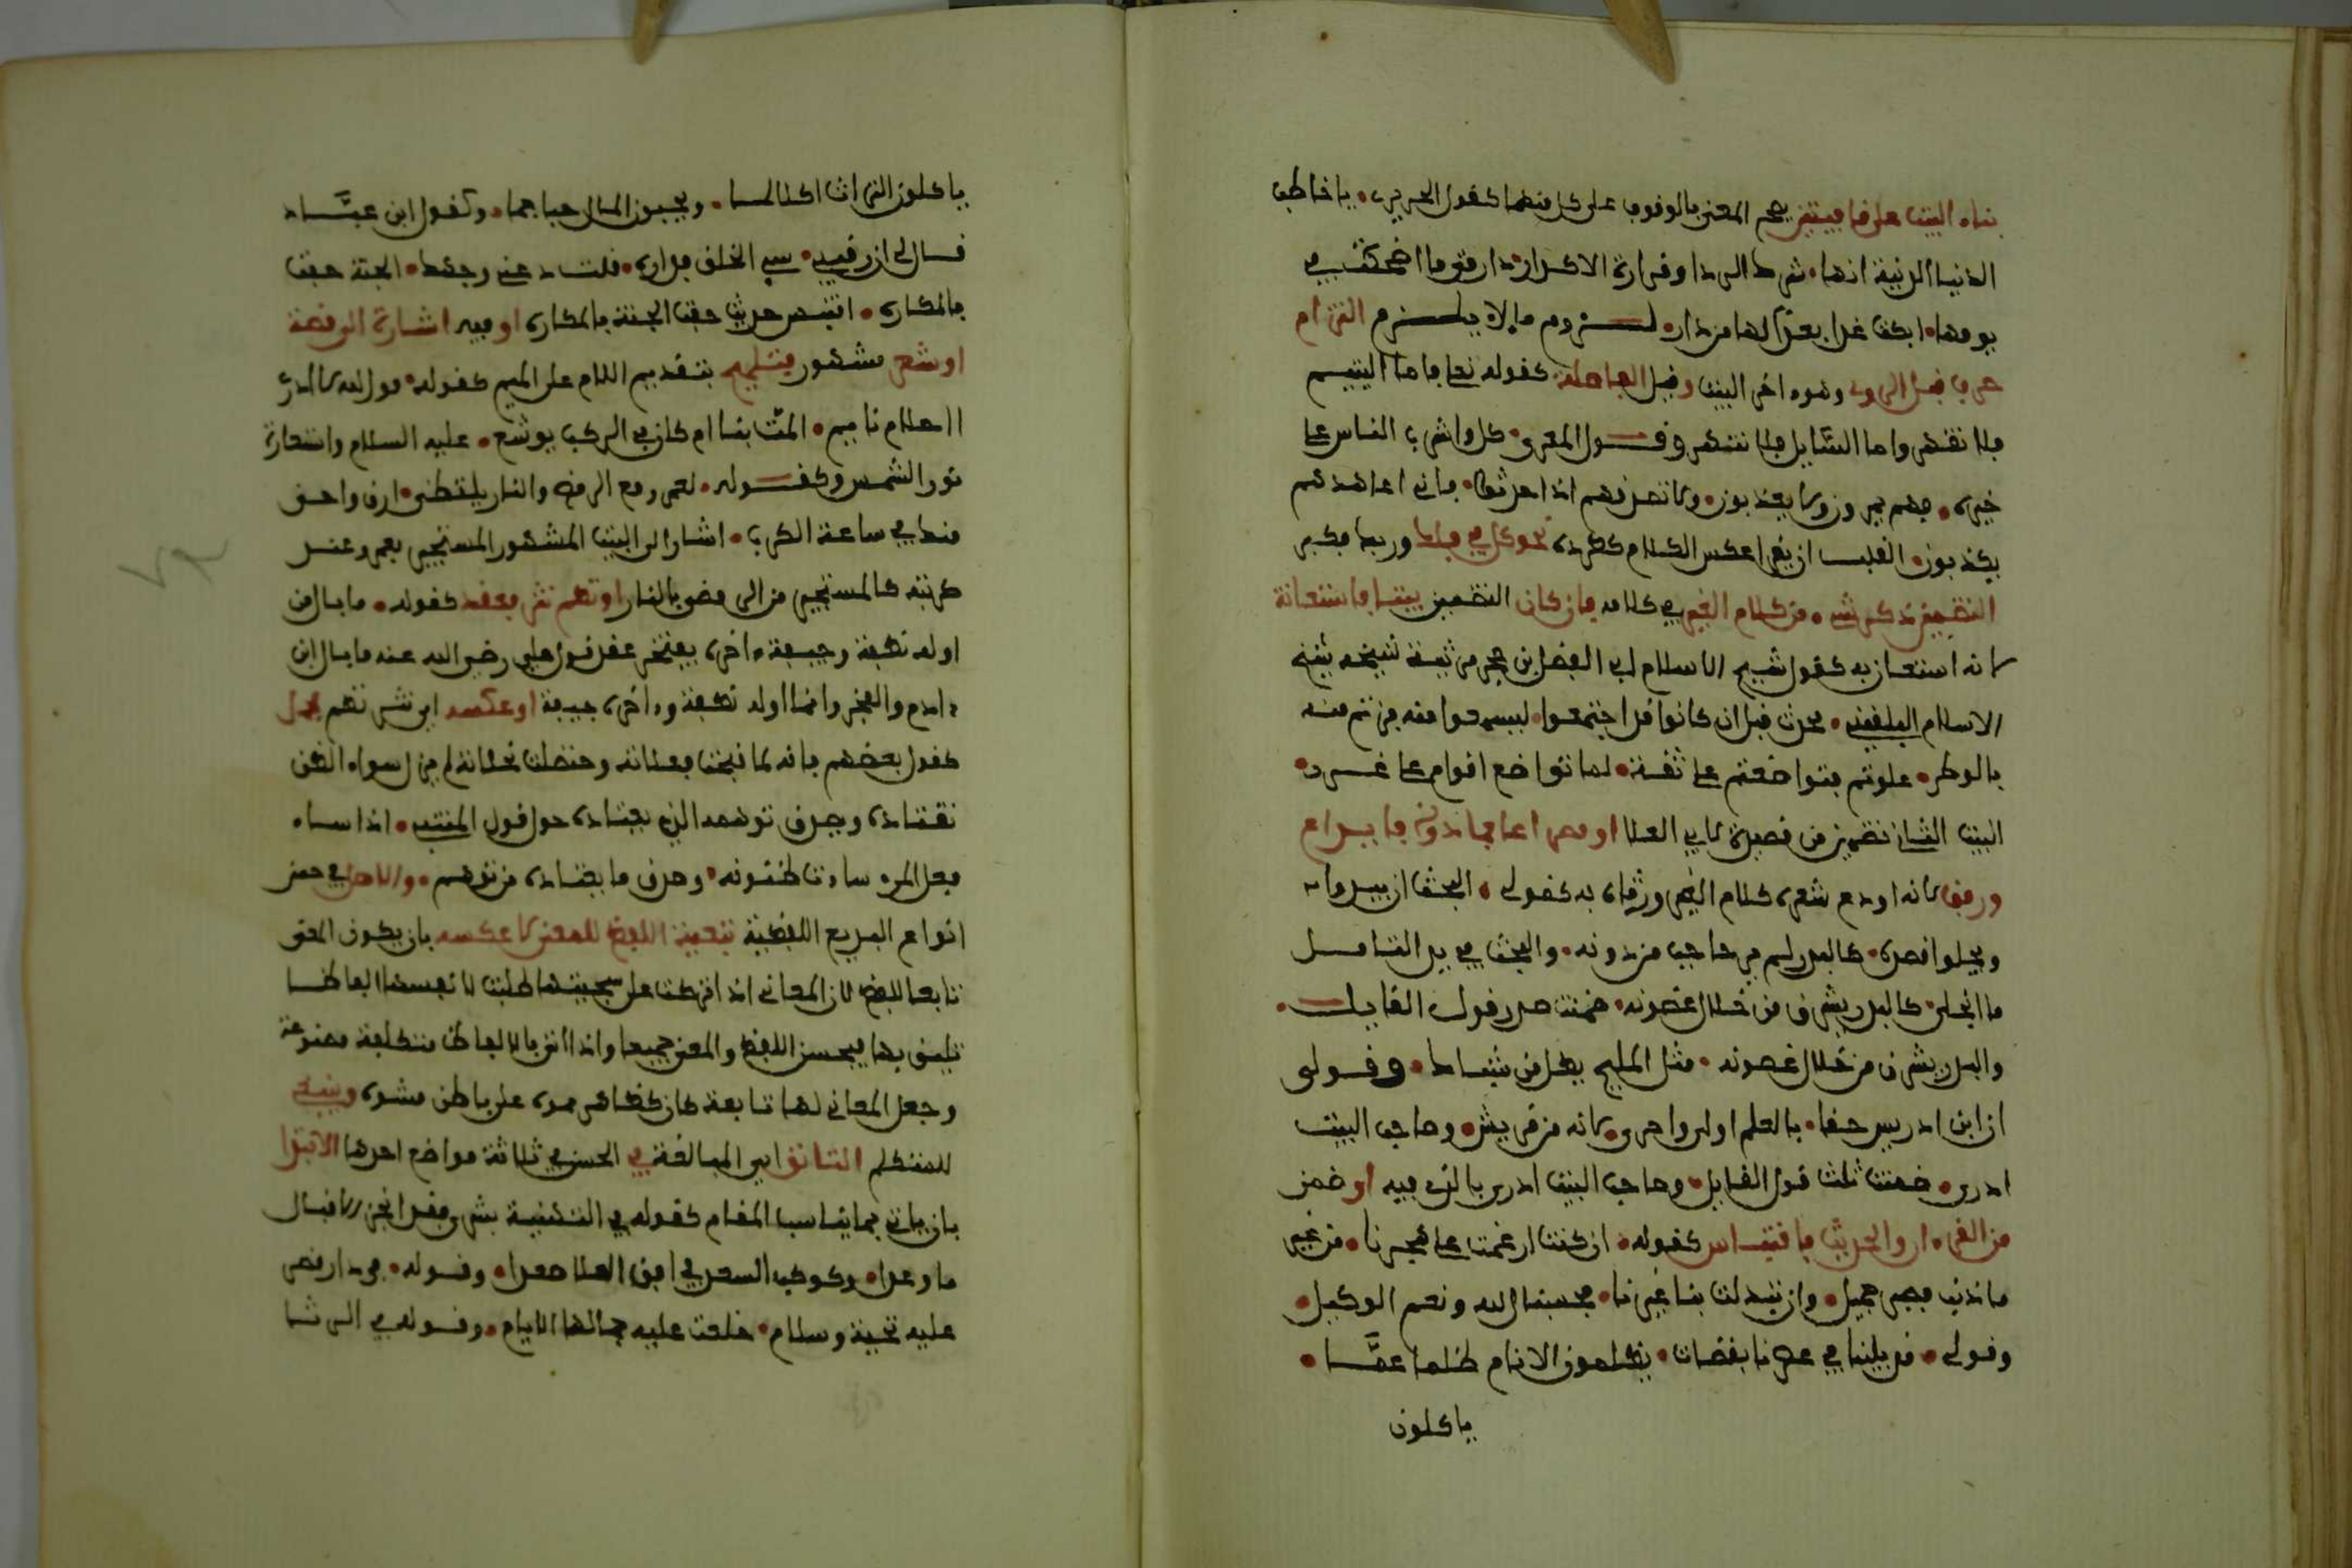 بناء البيت على قافيتين يصح المعنى بالوقوف على كل منهما كقول الحريري • يا خاطب
الدنيا الدنية انها • شرك الردا وقرارة الاكدار • دار متى ما اضحكت في
يومها • ابكت غدا بعدا لها من دار • لـزوم ما لا يلـزم التزام
حرف قبل الروي وهو ءاخر البيت وقبل الفاصلة كقوله تعالى فاما اليتيم
فلا تقهر واما السايل فلا تنهر وقـول المعرى • كل واشرب الناس على
خبرة • فهم يمرون ولا يعذبون • ولا تصدقهم اذا حدثوا • فاني اعاهدهم
يكذبون • القلب ان يقرا عكس الكلام كطرده نحو كل في فلك وربك فكبر
التضمين ذكر شيء من كلام الغير في كلامه فان كان التضمين بيتا فاستعانة
لانه استعان به كقول شيخ الاسلام ابي الفضل ابن حجر مرثية شيخه شيخ
الاسلام البلقيني • محدث قبل ان كانوا قد اجتمعوا • ليسمعوا منه من تم منه
بالوطر • علوتم فتواضعتم على ثقة • لما تواضع اقوام على غـرر •
البيت الثاني تضمين من قصيدة لابي العلا او مصراعا فما دونه فايداع
ورفو لانه اودع شعره كلام الغير ورفاه به كقولى • البحث ان يبدو ا
ويحلوا قصره • كالبدر لم من حاجب من دونه • والبحث في يد التامـل
ما انجلى • كالبدر يشرق من خلال غصونه • ضمنت صدر قول القايـل •
والبدر يشرق من خلال غصونه • مثل المليح يطل من شباك • وقـولى
ان ابن ادريس حقا • بالعلم اولى واحرى • لانه من قريش • وصاحب البيت
ادرى • ضمنت ثلث قول القايل • وصاحب البيت ادرى بالذي فيه او ضمن
من القرءان او الحديث فاقتباس كقوله • ان كنت ازمعت على هجرنا • من غير
ما ذنب فصبر جميل • وان تبدلت بنا غيرنا • فحسبنا الله ونعم الوكيل •
وقولى • قد بلينا في عصرنا بقضات • يظلمون الانام ظلما عمـا •
ياكلون
ياكلون التراث اكلا لما • ويحبون المال حبا جما • وكقول ابن عبـاد
قـال لى ان رقيبى • سيء الخلق فداره • قلت دعني وجهك • الجنة حفت
بالمكاره • اقتبس حديث حفت الجنة بالمكاره او فيه اشارة الى قصة
او شعر مشهور فتلميح بتقديم اللام على الميم كقوله • فوالله لا ادري
ااحلام نايم • المت بنا ام كان في الركب يوشع • عليه السلام واستعارة
نور الشمس وكقـوله • لعمرو مع الرمضا والنار يلتظى • ارق واحفى
منك في ساعة الكرب • اشار الى البيت المشهور المستجير بعمرو عنـد
كربته كالمستجير من الرمضا بالنار او نظم نثر فعقد كقوله • ما بال من
اوله نطفة وجيفة ءاخره يفتخر عقد قول على رضي الله عنه ما بال ابن
ءادم والفخر وانما اوله نطفة وءاخره جيفة او عكسه اي نثر نظم فحل
كقول بعضهم فانه لما قبحت فعلاته وحنظلت نخلاته لم يزل سوء الظن
يقتاده ويصدق توهمه الذي يعتاده حل قول المتنبي • اذا ساء
فعل المرء ساءت ظنونه • وصدق ما يعتاده من توهم • والاصل في حسن
انواع البديع اللفظية تبعية اللفظ للمعنى لا عكسه بان يكون المعنى
تابعا للفظ لان المعاني اذا تركت على سجيتها طلبت لانفسها الفاظـا
تليق بها فيحسن اللفظ والمعنى جميعا واذا اتى بالالفاظ متكلفة مصنوعة
وجعل المعاني لها تابعة كان كظاهر مموه على باطن مشوه وينبغي
للمتكلم التانق اي المبالغة في الحسن في ثلاثة مواضع احدها الابتدا
بان ياتي بما يناسب المقام كقوله في التهنية بشرى فقد انجز الاقبال
ما وعدا • وكوكب السعد في افق العلا صعدا • وقـوله • في دار قصر
عليه تحية وسلام • خلعت عليه جمالها الايام • وقـوله في الرثـا